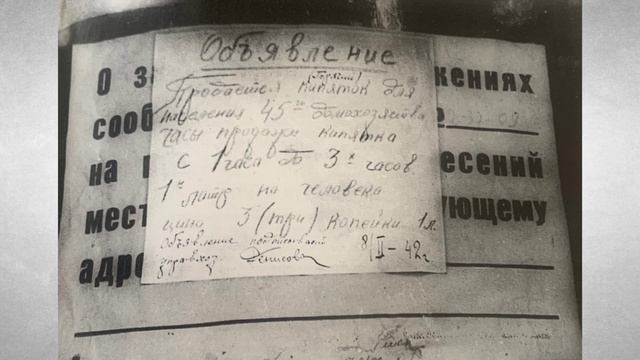 Объявление
(Горячий)
Продается кипяток для
населения 45го домохозяйства
часы продажи кипятка
с 1 часа до 3х часов.
1н литр на человека
цина 3 (три) копейки 1 л.
Объявление подписовал
управхоз. Денисова 8/II - 42 г
О жениях
сооб
на есений
мест ующему
адре